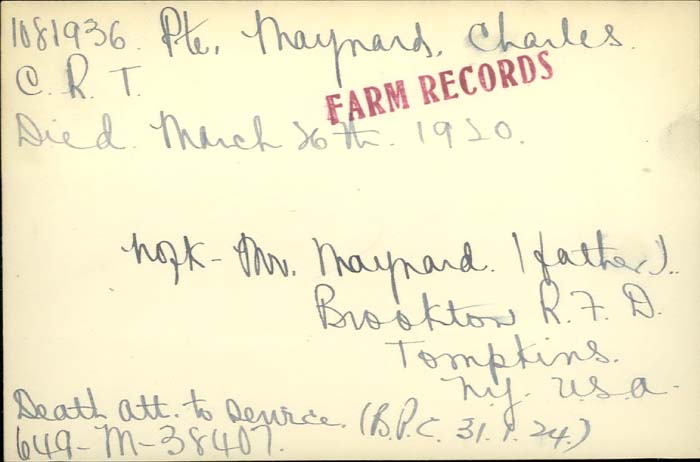 1081936. Pte. Maynard, Charles.
C. R. T.
FARM RECORDS
Died. March 26th. 1920.
nofk - Mr. Maynard. (father).
Brookton R. F. D.
Tompkins.
N.Y. U.S.A.
Death att. to Service. (B.P.C. 31.1.24.)
649-M-38407.